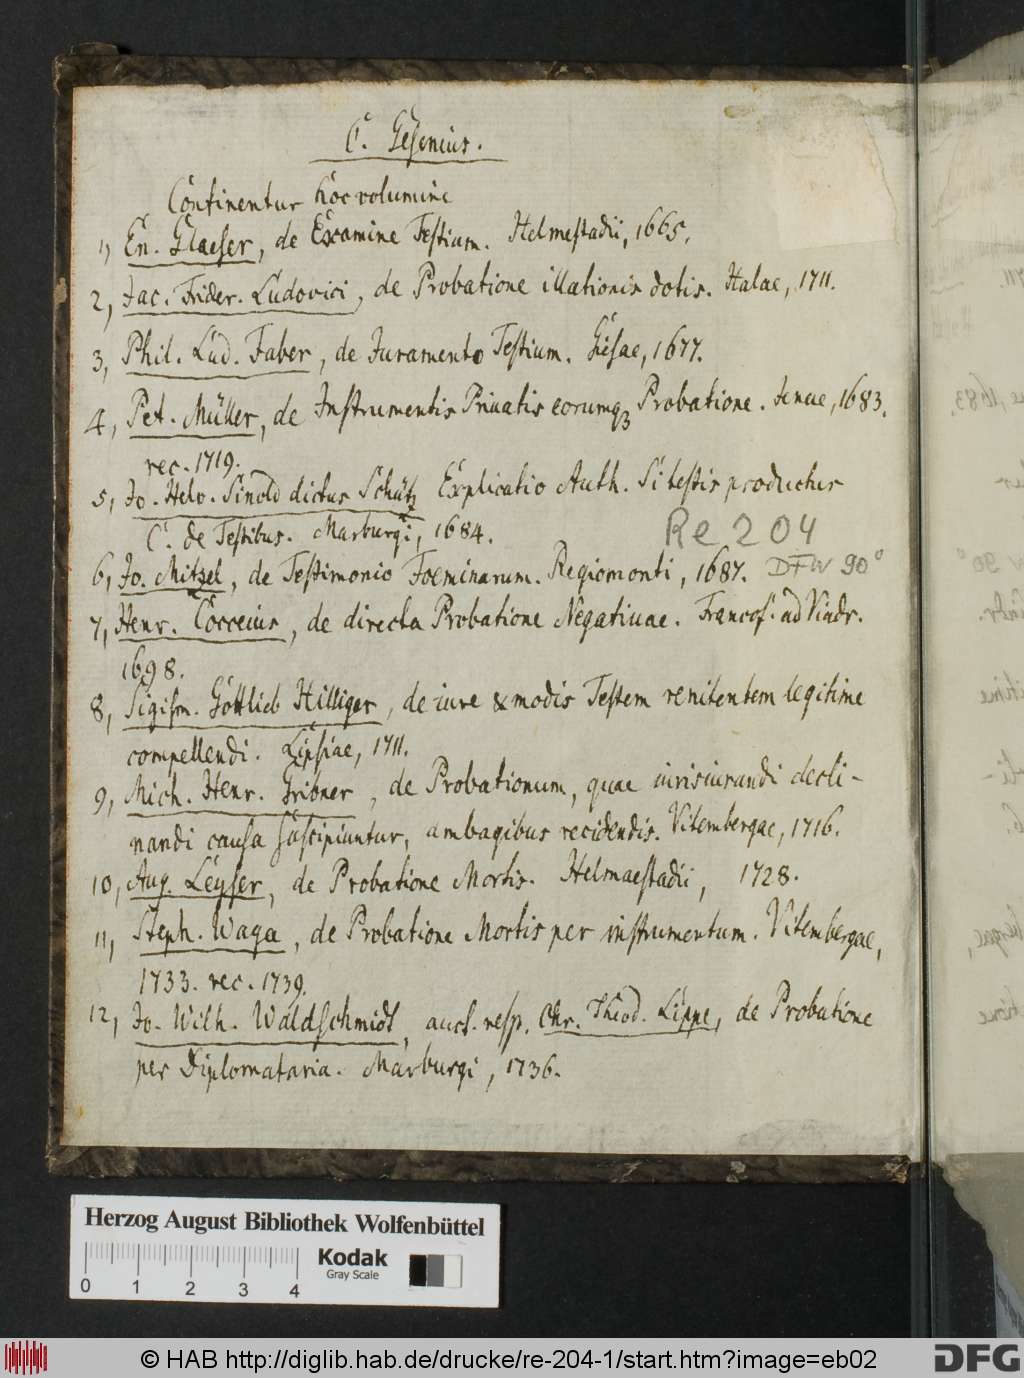 C. Gesenius.
Continentur hoc volumine
1, En. Glaeser, de Examine Testium. Helmestadii, 1665.
2, Jac. Frider. Ludovici, de Probatione illationis dotis. Halae, 1711.
3, Phil. Lud. Faber, de Juramento Testium. Giesae, 1677.
4, Pet. Müller, de Instrumentis Privatis eorumq; Probatione. Jenae, 1683.
rec. 1719.
5, Jo. Helv. Sinold dictus Schütz Explicatio Auth. Si testis productus
C. de Testibus. Marburgi, 1684.
Re 204
6, Jo. Mitzel, de Testimonio Foeminarum. Regiomonti, 1687. DFW 90°
7, Henr. Cocceius, de directa Probatione Negativae. Francof. ad Viadr.
1698.
8, Sigism. Gottlieb Hilliger, de iure & modis Testem renitentem legitime
compellendi. Lipsiae, 1711.
9, Mich. Henr. Gribner, de Probationum, quae iurisiurandi decli-
nandi causa suscipiuntur, ambagibus recidendis. Vitembergae, 1716.
10, Aug. Leyser, de Probatione Mortis. Helmaestadii, 1728.
11, Steph. Waga, de Probatione Mortis per instrumentum. Vitembergae,
1733. rec. 1739.
12, Jo. Wilh. Waldschmidt, auct. resp. Chr. Theod. Lippe, de Probatione
per Diplomataria. Marburgi, 1736.
Herzog August Bibliothek Wolfenbüttel
0 1 2 3 4
Kodak
Gray Scale
© HAB http://diglib.hab.de/drucke/re-204-1/start.htm?image=eb02
DFG